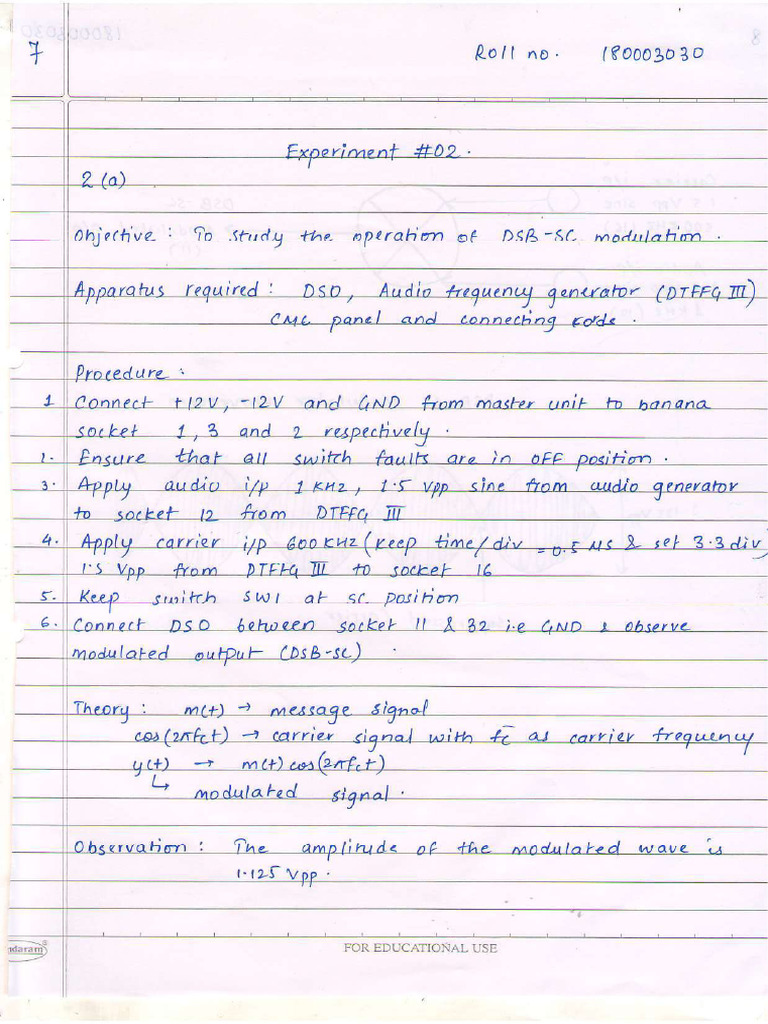 7
Roll no. 180003030
Experiment #02.
2(a)
Objective : To study the operation of DSB-SC modulation.
Apparatus required : DSO, Audio frequency generator (DTFFG III)
CMC panel and connecting cords.
Procedure :
1 Connect +12V, -12V and GND from master unit to banana
socket 1, 3 and 2 respectively.
2. Ensure that all switch faults are in OFF position.
3. Apply audio i/p 1 KHz, 1.5 Vpp sine from audio generator
to socket 12 from DTFFG III
4. Apply carrier i/p 600 KHz (keep time/div = 0.5 μs & set 3.3 div)
1.5 Vpp from DTFFG III to socket 16
5. Keep switch SW1 at SC position
6. Connect DSO between socket 11 & 32 i.e GND & observe
modulated output (DSB-SC) .
Theory : m(t) → message signal
cos(2πfct) → carrier signal with fc as carrier frequency
y(t) → m(t) cos(2πfct)
↳ modulated signal.
Observation : The amplitude of the modulated wave is
1.125 Vpp.
ndaram®
FOR EDUCATIONAL USE